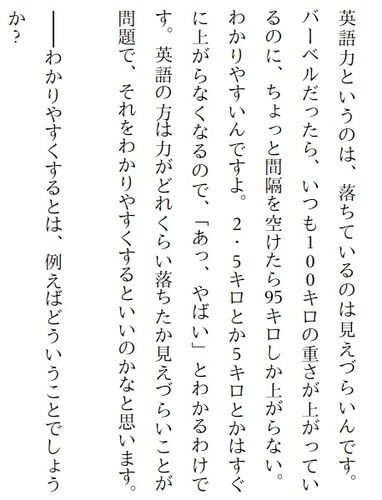 英語力というのは、落ちているのは見えづらいんです。
バーベルだったら、いつも100キロの重さが上がってい
るのに、ちょっと間隔を空けたら95キロしか上がらない。
わかりやすいんですよ。2・5キロとか5キロとかはすぐ
に上がらなくなるので、「あっ、やばい」とわかるわけで
す。英語の方は力がどれくらい落ちたか見えづらいことが
問題で、それをわかりやすくするといいのかなと思います。
──わかりやすくするとは、例えばどういうことでしょう
か?